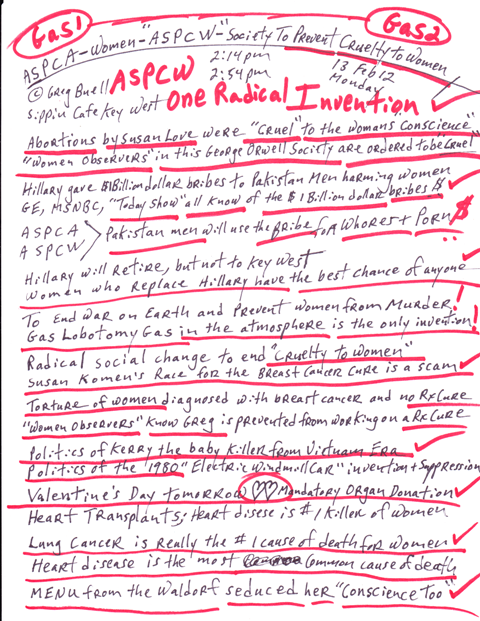 Gas1 Gas2
ASPCA-Women-"ASPCW"-Society To Prevent Cruelty to Women
© Greg Buell ASPCW 2:14pm 13 Feb 12
2:54pm Monday
Sippin Cafe Key West One Radical Invention
Abortions by Susan Love were "Cruel" to the womans conscience"
"Women Observers" in this George Orwell Society are ordered to be "Cruel"
Hillary gave $1Billion dollar bribes to Pakistan Men harming women
GE, MSNBC, "Today Show" all know of the $1Billion dollar bribes $
ASPCA
ASPCW > Pakistan men will use the Bribe for Whores + Porn $
Hillary will Retire, but not to Key West
Women who Replace Hillary have the best chance of anyone
To End War on Earth and Prevent Women from Murder!
Gas Lobotomy Gas in the atmosphere is the only invention!
Radical social change to end "Cruelty to Women"
Susan Komen's Race for the Breast Cancer Cure is a scam
Torture of women diagnosed with breast cancer and no Rx Cure
"Women Observers" Know Greg is prevented from working on a Rx Cure
Politics of Kerry the baby Killer from Vietnam Era
Politics of the "1980" Electric Windmill Car" invention + Suppression
Valentine's Day tomorrow Mandatory Organ Donation
Heart Transplants; Heart disese is #1 Killer of women
Lung Cancer is really the #1 cause of death for Women
Heart disease is the most Common cause of death
MENU from the Waldorf seduced her "Conscience Too"